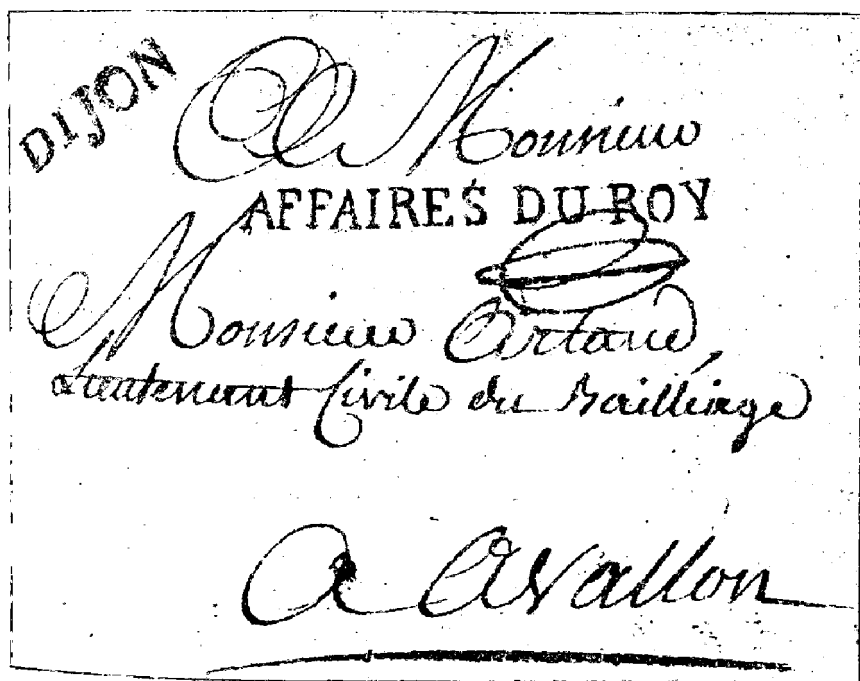 DIJON
A Monsieur
AFFAIRES DU ROY
Monsieur Artaud,
Lieutenant Civile du Bailliage
A Avallon